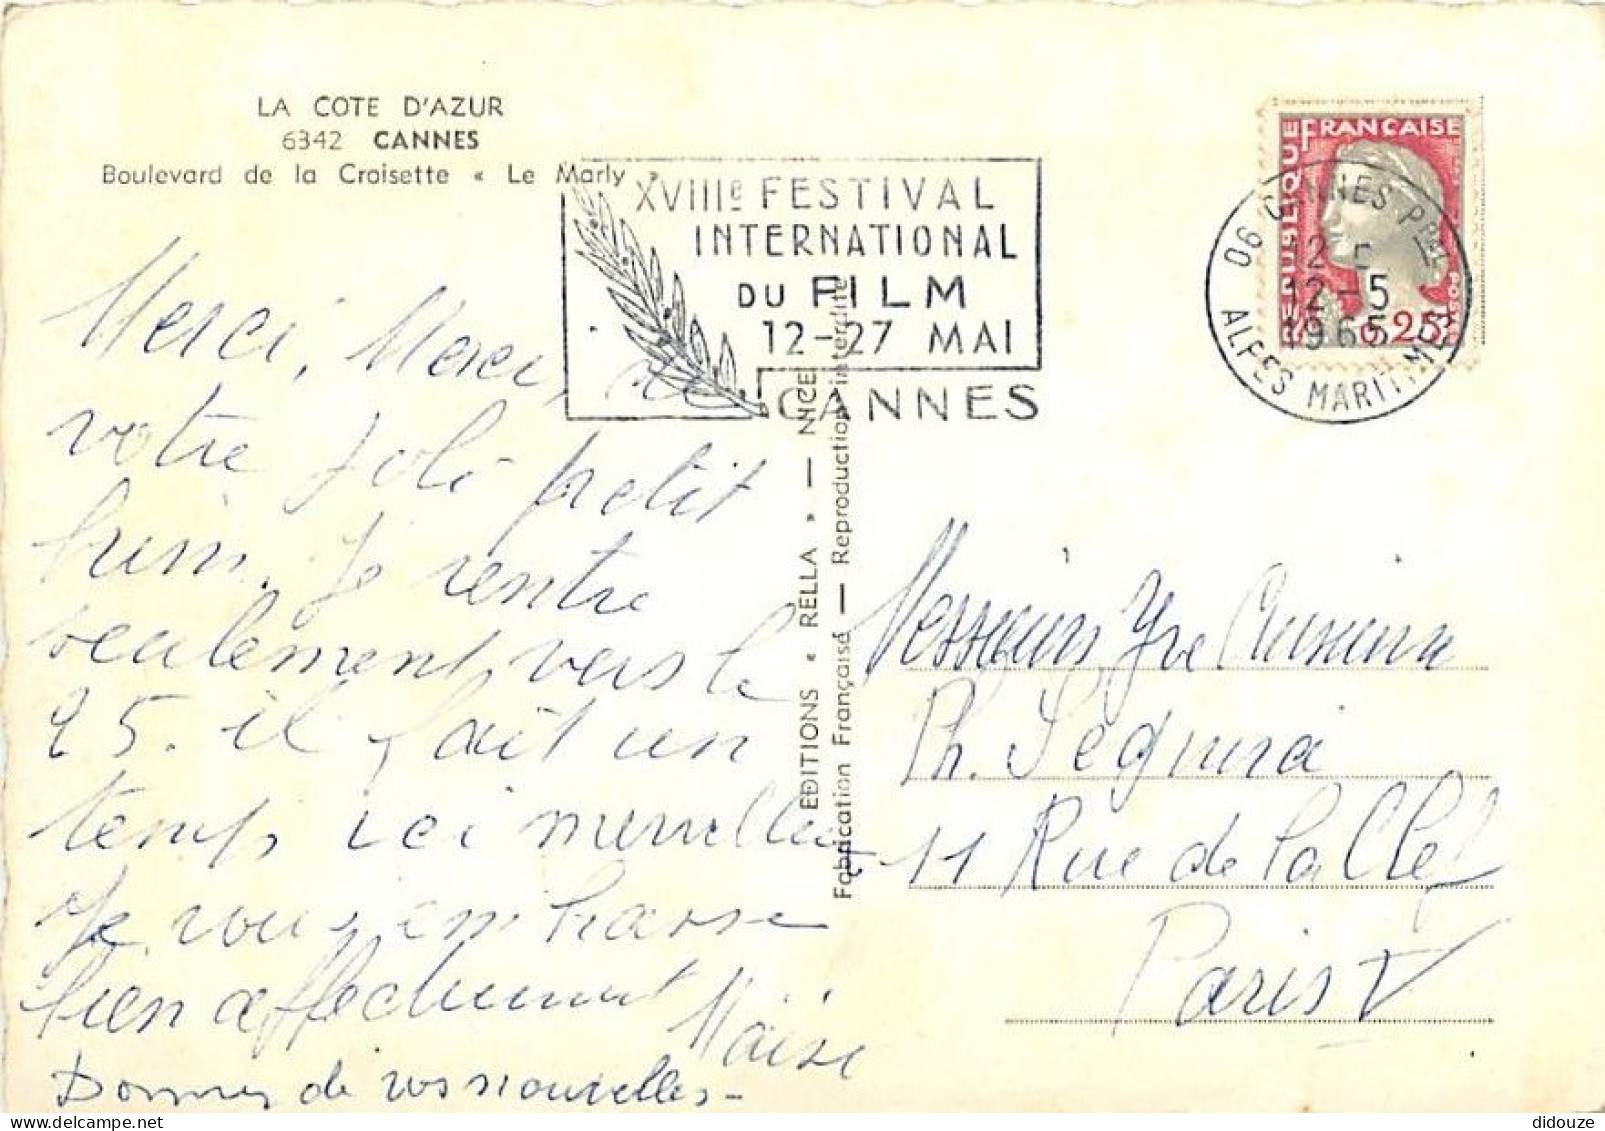 LA COTE D'AZUR
6342 CANNES
Boulevard de la Croisette « Le Marly »
XVIIIe FESTIVAL
INTERNATIONAL
DU FILM
12-27 MAI
CANNES
REPUBLIQUE FRANCAISE
POSTES
0,25
06 CANNES Pal
12-5
1965
ALPES MARITIMES
Merci, Merci, de
votre joli petit
. Je rentre
seulement vers le
25. il fait un
temps ici
Je vous embrasse
bien affectueusement
Donnez de vos nouvelles-
EDITIONS « RELLA » — NICE
Fabrication Française — Reproduction interdite
Messieurs
Ph.
11 Rue de la Clef
Paris V
didouze